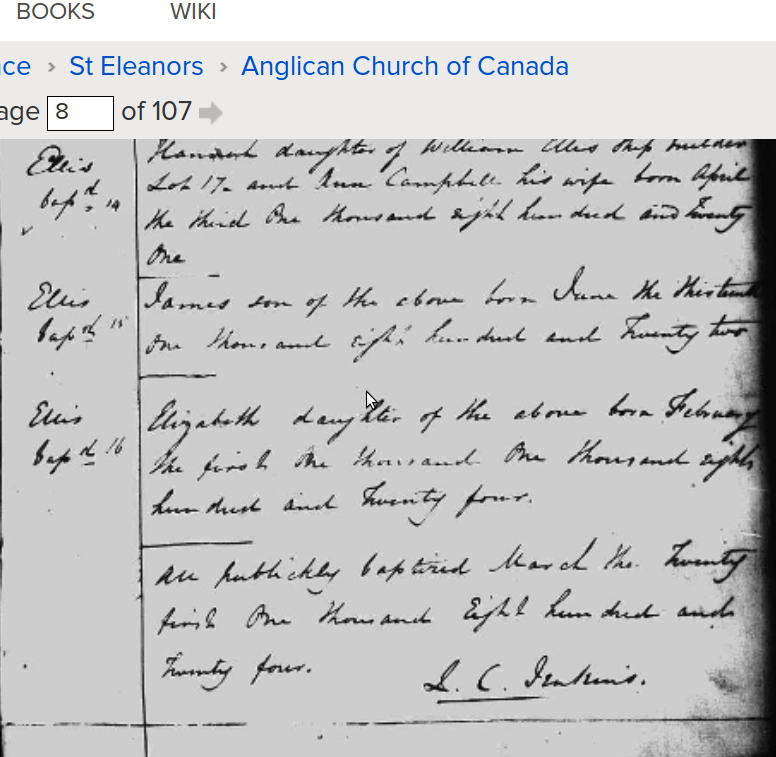 BOOKS WIKI
ce › St Eleanors › Anglican Church of Canada
age 8 of 107
Ellis
bapd 14
Hannah daughter of William Ellis Ship builder
Lot 17. and Ann Campbell his wife born April
the third One thousand eight hundred and Twenty
One
Ellis
bapd 15
James son of the above born June the thirteenth
One thousand eight hundred and Twenty two
Ellis
bapd 16
Elizabeth daughter of the above born February
the first One thousand One thousand eight
hundred and Twenty four.
All publickly baptized March the Twenty
first One thousand Eight hundred and
Twenty four.
L. C. Jenkins.